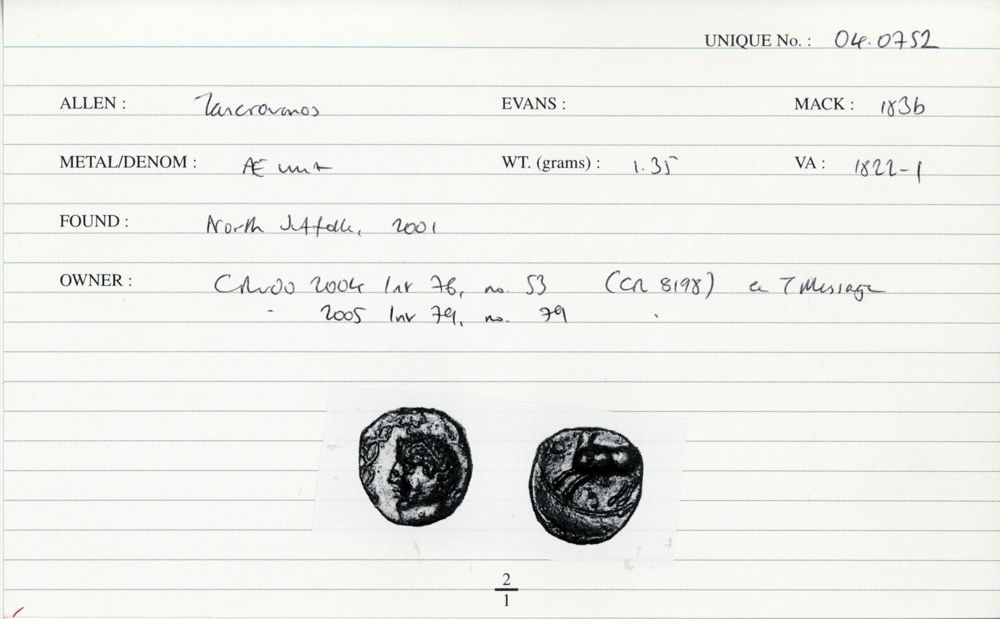 UNIQUE No. : 04.0752
ALLEN : Tasciovanos EVANS : MACK : 183b
METAL/DENOM : Æ unit WT. (grams) : 1.35 VA : 1822-1
FOUND : North Suffolk, 2001
OWNER : 2004 list 76, no. 53 (CR 8198) T Message
" 2005 list 79, no. 79 "
2
1